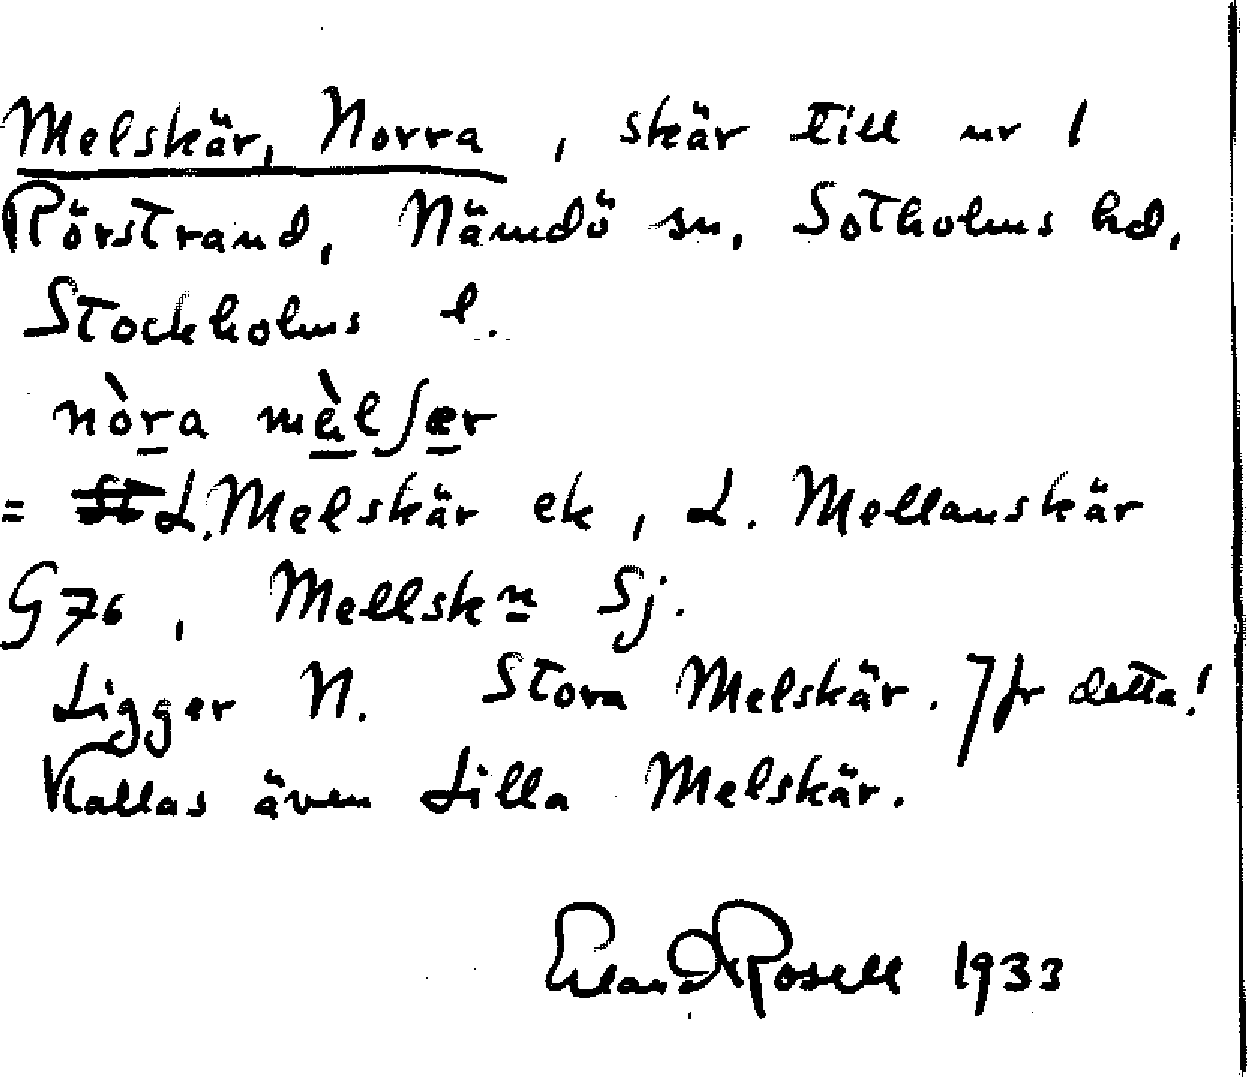 Melskär, Norra, skär till nr 1
Rörstrand, Nämdö sn, Sotholms hd,
Stockholms l.
nòra mæ̀lʃær
= St L. Melskär ek, L. Mellanskär
G76, Mellskn Sj.
Ligger N. Stora Melskär. Jfr detta!
Kallas även Lilla Melskär.
Erland Rosell 1933